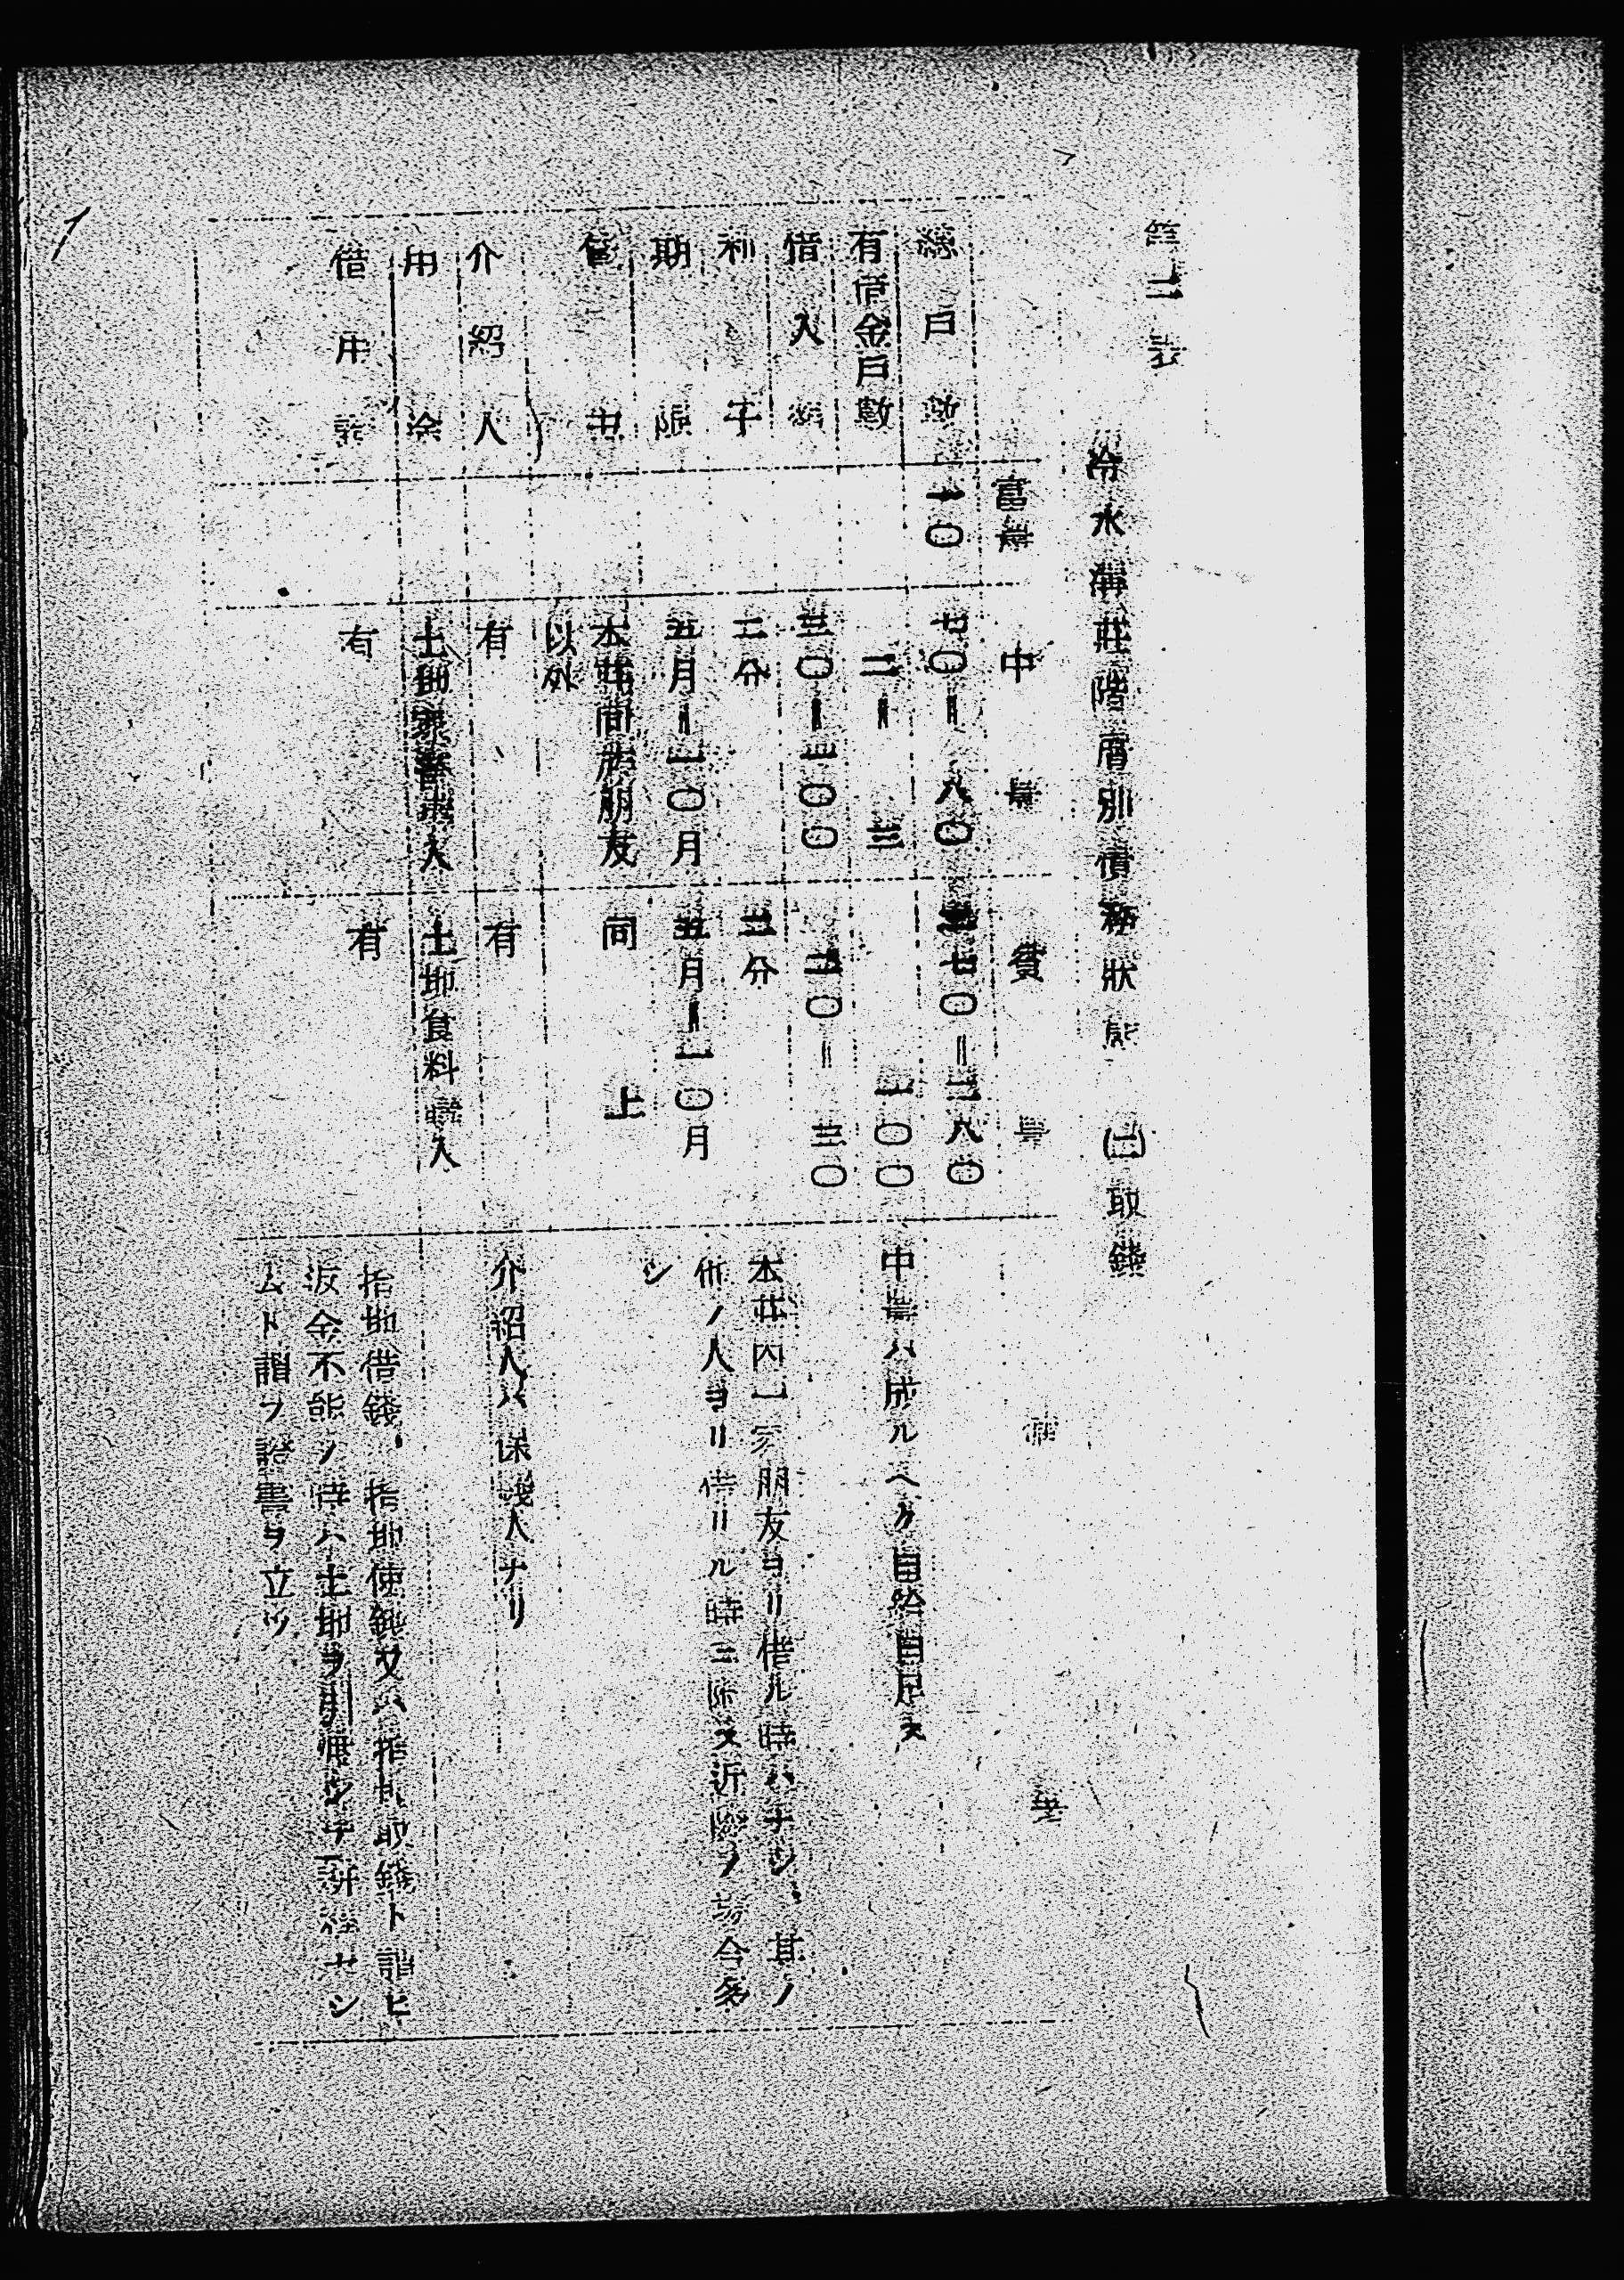 第二表
冷水溝莊階層別債務狀態 (二)取錢
富農 中農 貧農 備考
總戶數 一〇 七〇—八〇 七〇—二八〇
有借金戶數 二—三 一〇〇 中農ハ成ルベク自給自足ス
借入額 三〇—一〇〇 二〇—三〇
利子 二分 三分 本莊內一家朋友ヨリ借ル時ハナシ、其ノ
他ノ人ヨリ借リル時ニ限ス近隣ノ場合多
シ
期限 五月—一〇月 五月—一〇月
貸主 本莊同族朋友 同上
以外
介紹人 有 有 介紹人ハ保錢人ナリ
用途 土地家畜購入 土地食料購入
借用證 有 有 指地借錢、指地使錢又ハ指地取錢ト謂ヒ
返金不能ノ時ハ土地ヲ引渡シテ耕種セシ
ムト謂フ證書ヲ立ツ